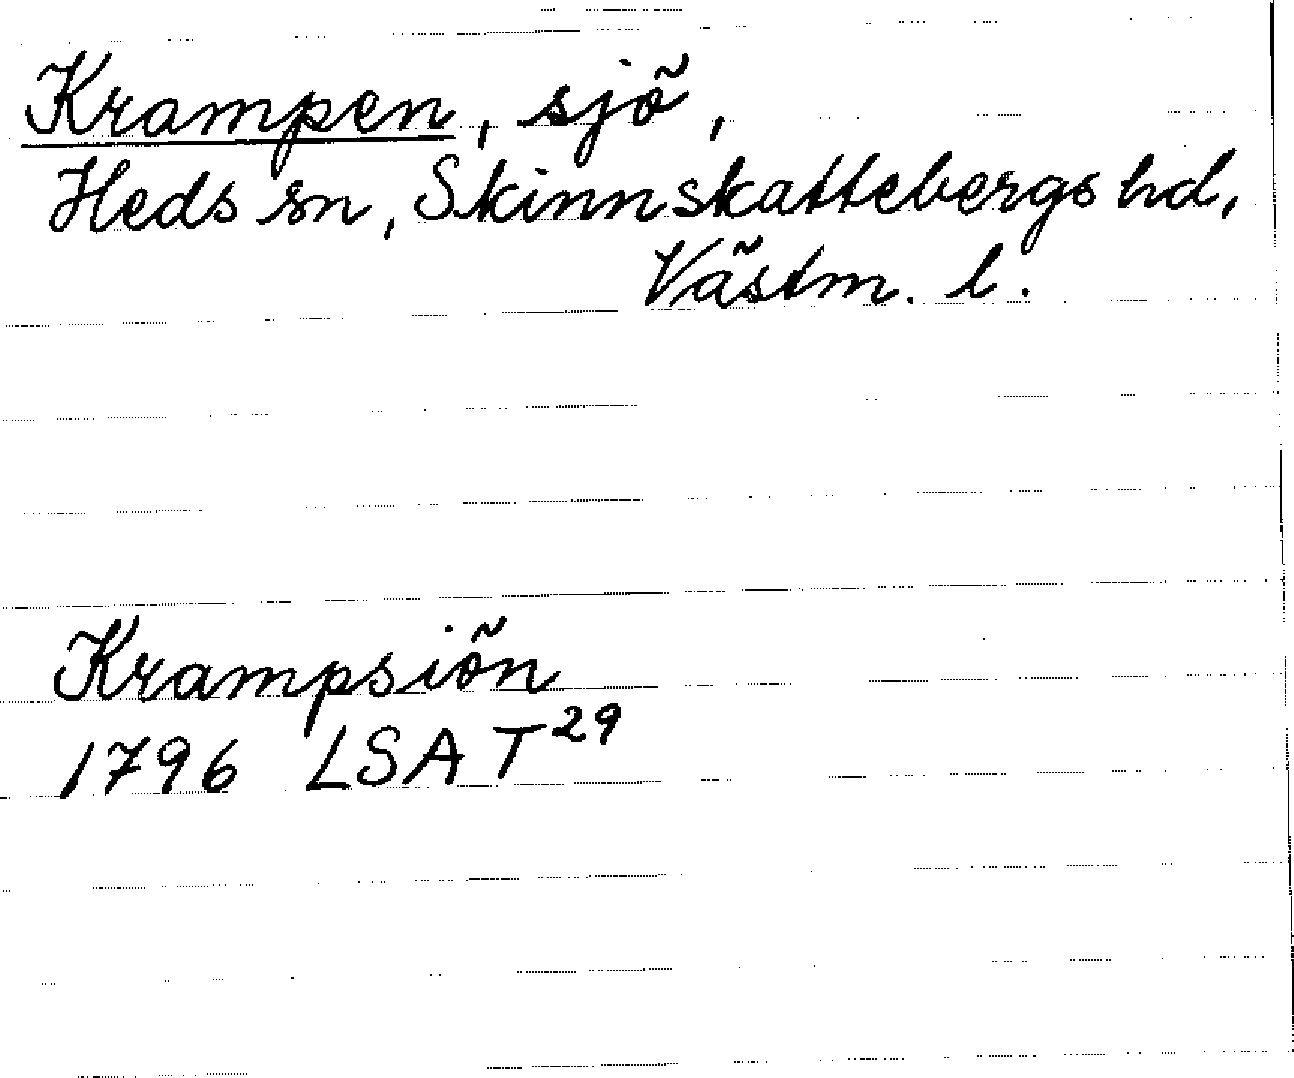 Krampen, sjö,
Heds sn, Skinnskattebergs hd,
Västm. l.
Krampsiön
1796 LSA T²⁹